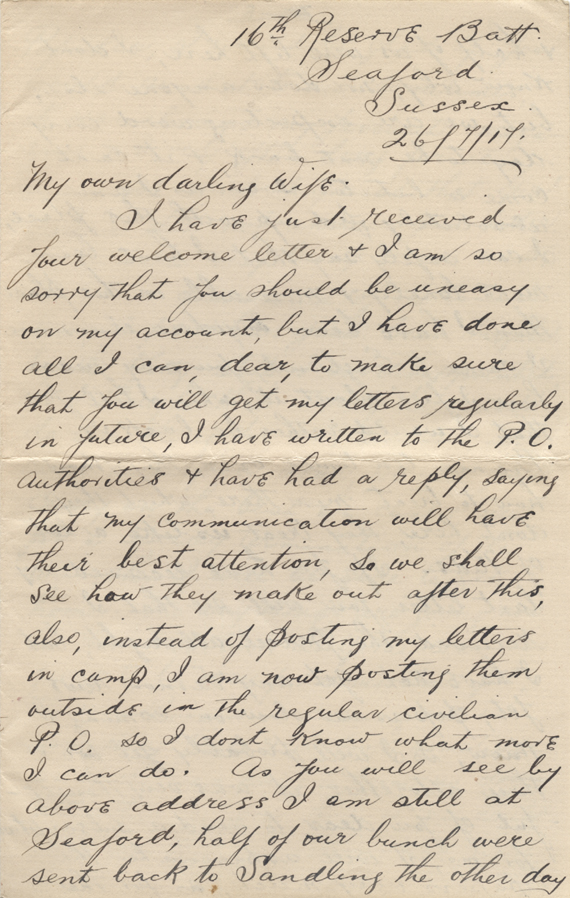 16th Reserve Batt.
Seaford.
Sussex.
26/7/17.
My own darling Wife.
I have just received
your welcome letter & I am so
sorry that you should be uneasy
on my account, but I have done
all I can, dear, to make sure
that you will get my letters regularly
in future, I have written to the P. O.
authorities & have had a reply, saying
that my communication will have
their best attention, so we shall
see how they make out after this,
also, instead of posting my letters
in camp, I am now posting them
outside in the regular civilian
P. O. so I dont know what more
I can do. As you will see by
above address I am still at
Seaford, half of our bunch were
sent back to Sandling the other day